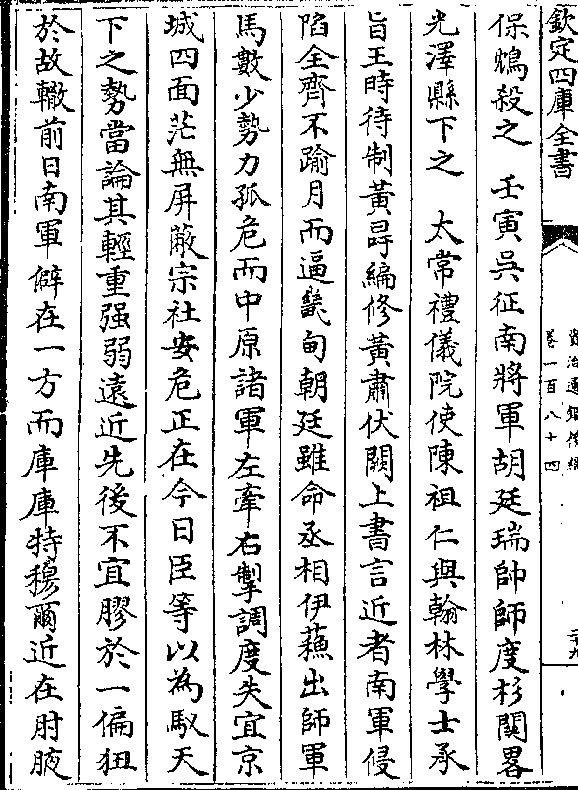 欽定四庫全書
資治通鑑後編
卷一百八十四
保鴆殺之　壬寅吳征南將軍胡廷瑞帥師度杉關畧
光澤縣下之　太常禮儀院使陳祖仁與翰林學士承
旨王時待制黃㝷編修黃肅伏闕上書言近者南軍侵
陷全齊不踰月而逼畿甸朝廷雖命丞相伊蘓出師軍
馬數少勢力孤危而中原諸軍左牽右掣調度失宜京
城四面茫無屏蔽宗社安危正在今日臣等以為馭天
下之勢當論其輕重强弱遠近先後不宜膠於一偏狃
於故轍前日南軍僻在一方而庫庫特穆爾近在肘腋